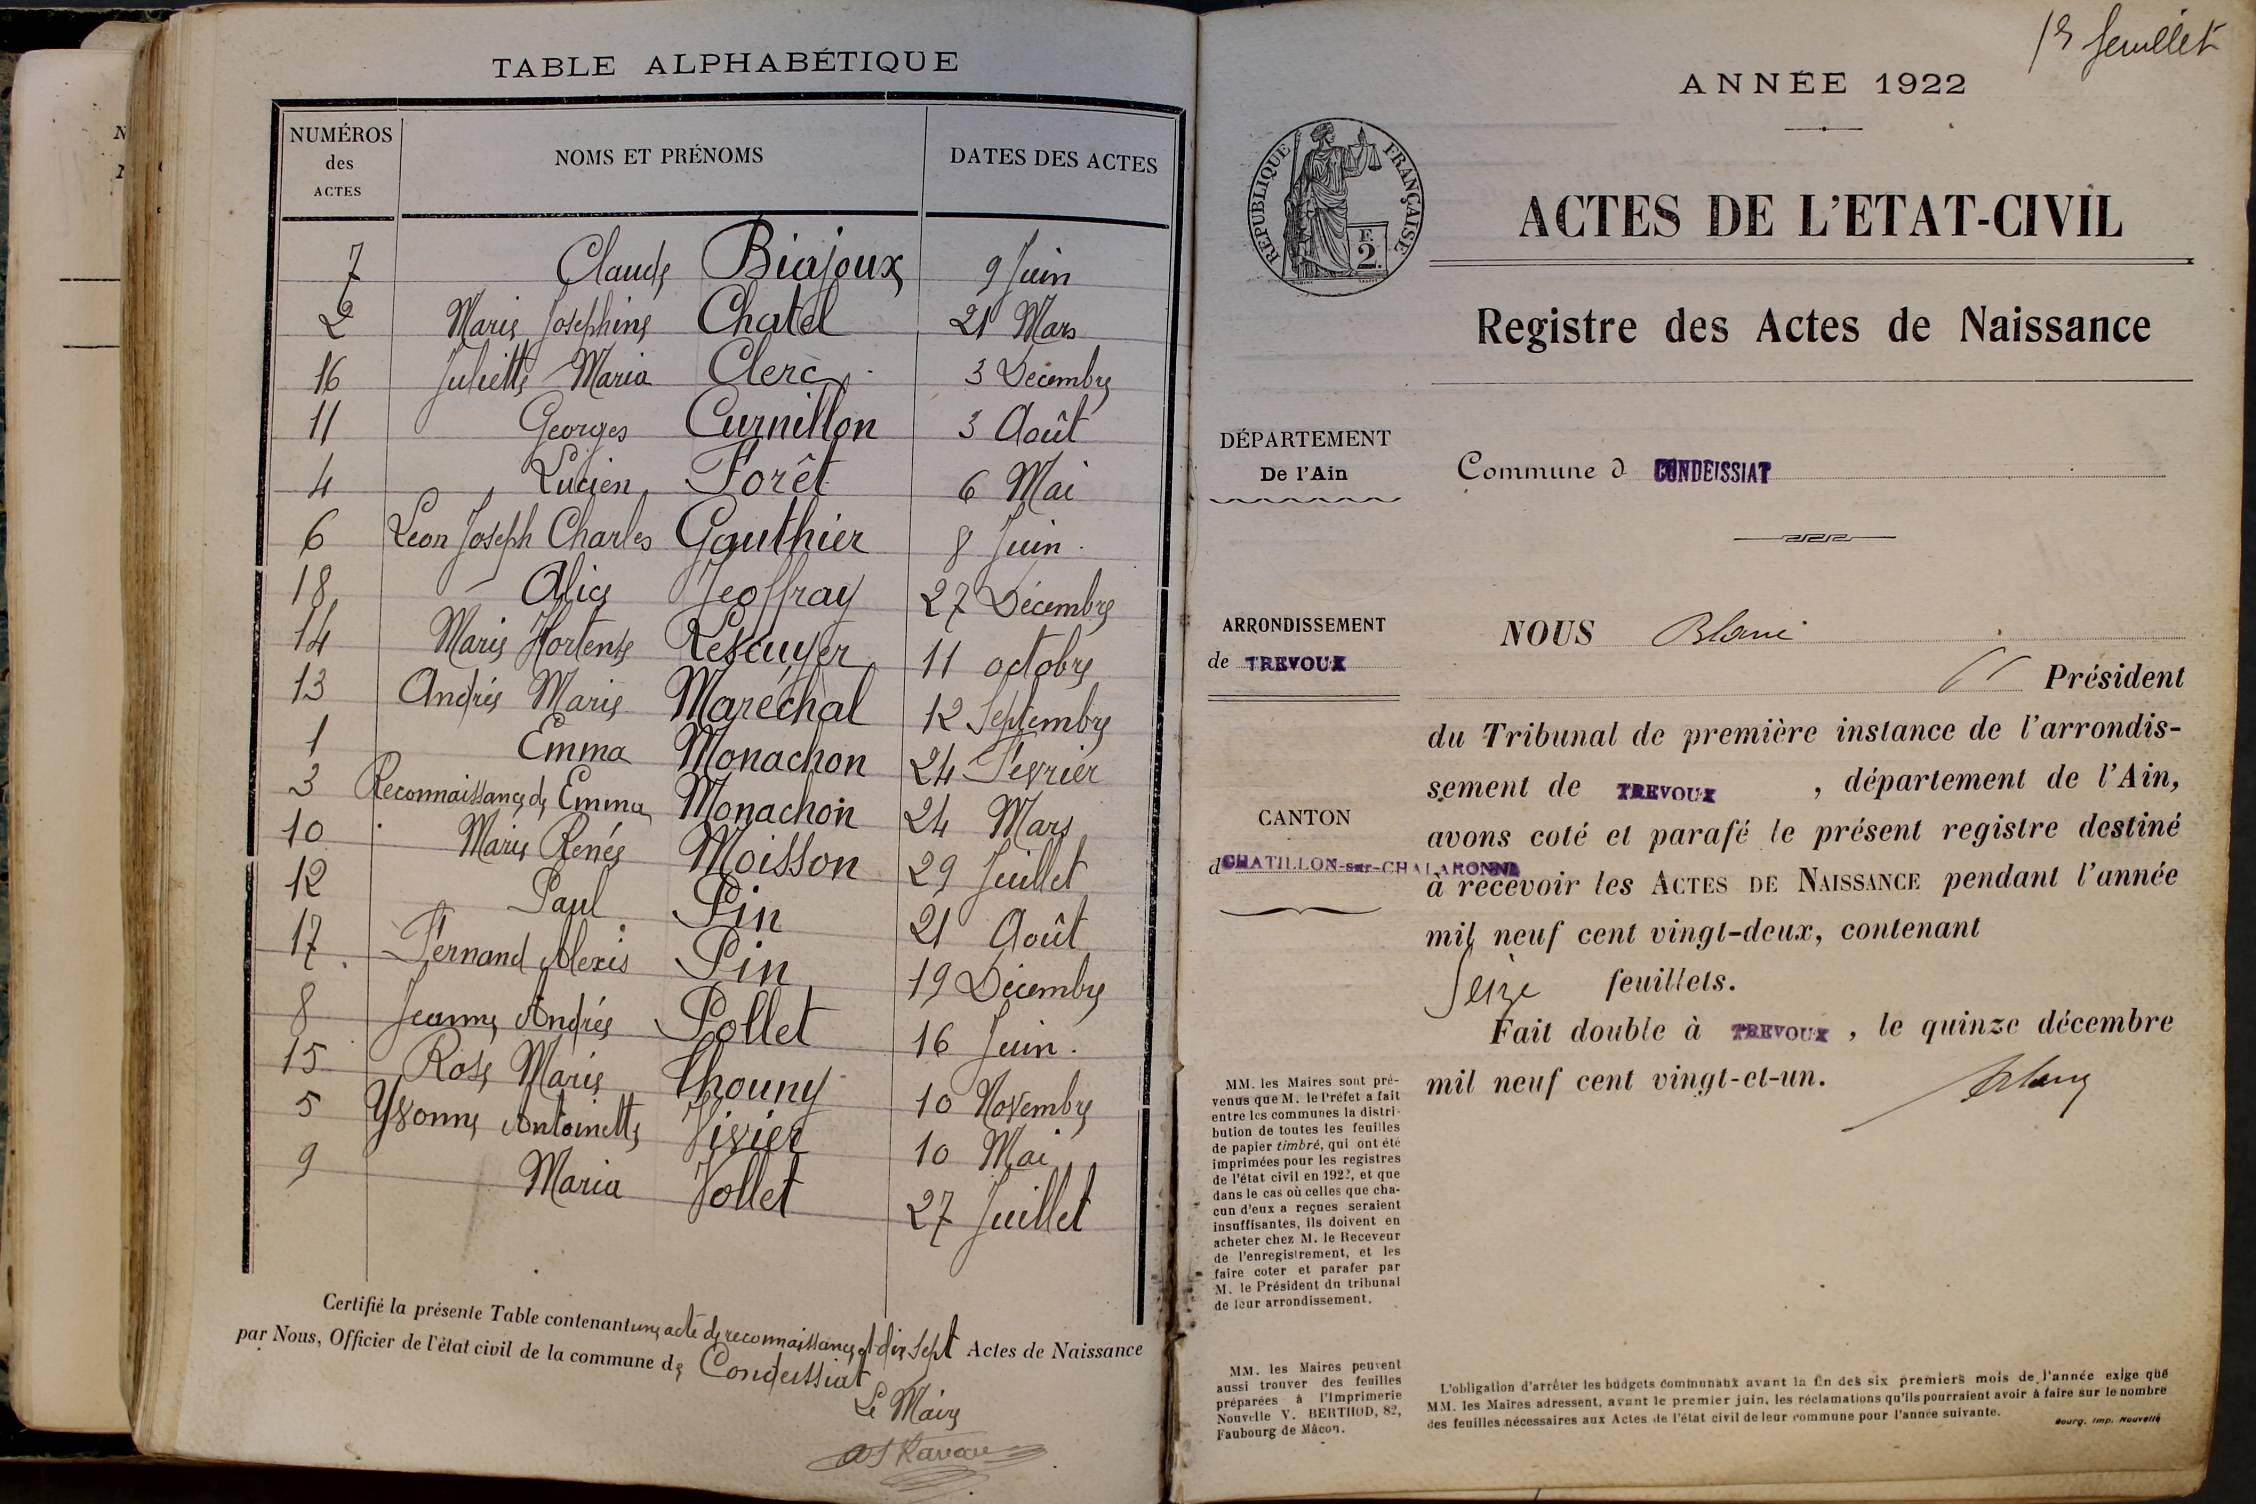 TABLE ALPHABÉTIQUE
NUMÉROS des ACTES NOMS ET PRÉNOMS DATES DES ACTES
7 Claude Biajoux 9 Juin
2 Marie Joséphine Chatel 21 Mars
16 Juliette Maria Clerc 3 Décembre
11 Georges Curnillon 3 Août
4 Lucien Forêt 6 Mai
6 Léon Joseph Charles Gauthier 8 Juin
18 Alice Jeoffray 27 Décembre
14 Marie Hortense Lescuyer 11 octobre
13 Andrée Marie Maréchal 12 Septembre
1 Emma Monachon 24 Février
3 Reconnaissance de Emma Monachon 24 Mars
10 Marie Renée Moisson 29 Juillet
12 Paul Pin 21 Août
17 Fernand Alexis Pin 19 Décembre
8 Jeanne Andrée Pollet 16 Juin
15 Rose Marie Thouny 10 Novembre
5 Yvonne Antoinette Vivier 10 Mai
9 Maria Vollet 27 Juillet
Certifié la présente Table contenant une acte de reconnaissance et dix sept Actes de Naissance
par Nous, Officier de l'état civil de la commune de Condeissiat
Le Maire
feuillet
ANNÉE 1922
RÉPUBLIQUE FRANÇAISE
F.
2.
ACTES DE L'ETAT-CIVIL
Registre des Actes de Naissance
DÉPARTEMENT
De l'Ain
Commune d CONDEISSIAT
ARRONDISSEMENT
de TREVOUX
CANTON
d CHATILLON-sur-CHALARONNE
NOUS
Président
du Tribunal de première instance de l'arrondis-
sement de TREVOUX , département de l'Ain,
avons coté et parafé le présent registre destiné
à recevoir les ACTES DE NAISSANCE pendant l'année
mil neuf cent vingt-deux, contenant
Seize feuillets.
Fait double à TREVOUX , le quinze décembre
mil neuf cent vingt-et-un.
MM. les Maires sont pré-
venus que M. le Préfet a fait
entre les communes la distri-
bution de toutes les feuilles
de papier timbré, qui ont été
imprimées pour les registres
de l'état civil en 1922, et que
dans le cas où celles que cha-
cun d'eux a reçues seraient
insuffisantes, ils doivent en
acheter chez M. le Receveur
de l'enregistrement, et les
faire coter et parafer par
M. le Président du tribunal
de leur arrondissement.
MM. les Maires peuvent
aussi trouver des feuilles
préparées à l'Imprimerie
Nouvelle V. BERTHOD, 82,
Faubourg de Mâcon.
L'obligation d'arrêter les budgets communaux avant la fin des six premiers mois de l'année exige que
MM. les Maires adressent, avant le premier juin, les réclamations qu'ils pourraient avoir à faire sur le nombre
des feuilles nécessaires aux Actes de l'état civil de leur commune pour l'année suivante.
Bourg. Imp. Nouvelle